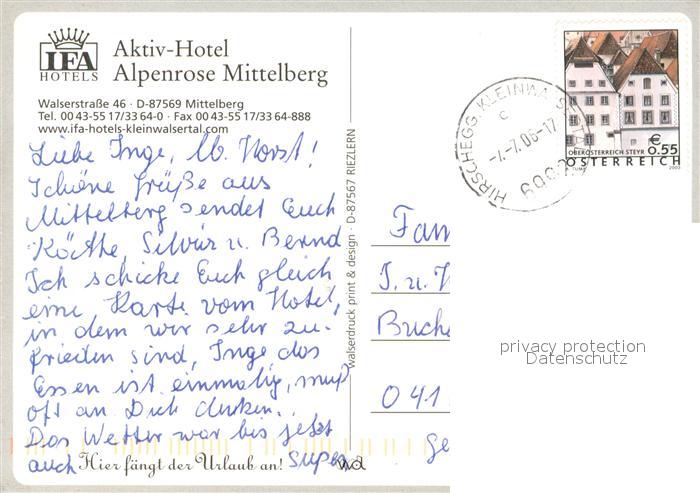 IFA
HOTELS
Aktiv-Hotel
Alpenrose Mittelberg
Walserstraße 46 · D-87569 Mittelberg
Tel. 00 43-55 17/33 64-0 · Fax 00 43-55 17/33 64-888
www.ifa-hotels-kleinwalsertal.com
Liebe Inge, lb. Horst!
Schöne Grüße aus
Mittelberg sendet Euch
Käthe, u. Bernd
Ich schicke Euch gleich
eine Karte vom Hotel,
in dem wir sehr zu-
frieden sind, Inge das
Essen ist einmalig, muß
oft an Dich denken.
Das Wetter war bis jetzt
auch super
Hier fängt der Urlaub an!
walserdruck print & design · D-87567 RIEZLERN
HIRSCHEGG, KLEINWALSERTAL
c
-7.-7.06-17
6992
€ 0.55
OBERÖSTERREICH STEYR
ÖSTERREICH
Fam
I. u. H
Buche
041
privacy protection
Datenschutz